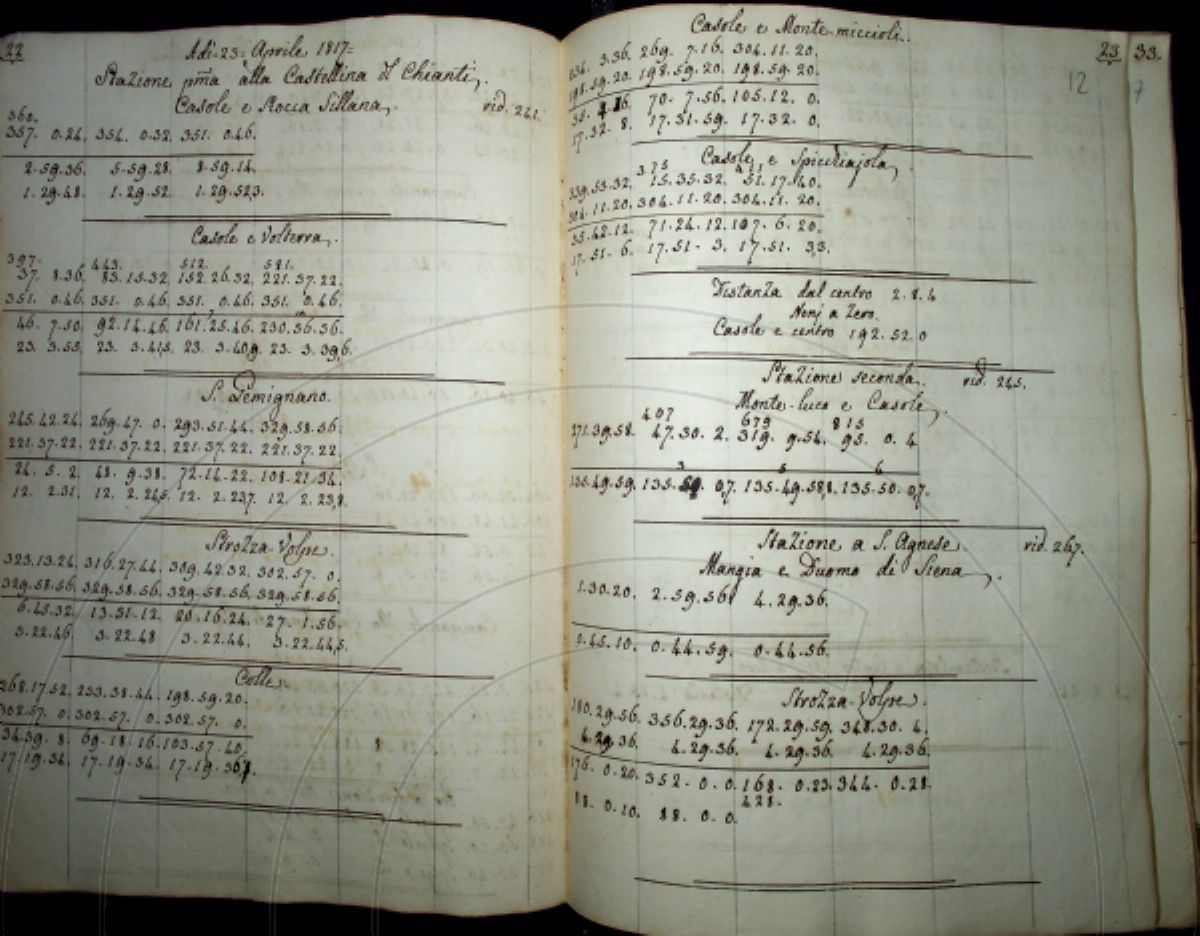 22
Adì 23 Aprile 1817=
Stazione pma alla Castellina d Chianti,
Casole e Rocca Sillana, rid. 241.
360.
357. 0.24. 354. 0.32. 351. 0.46.
2.59.36. 5.59.28. 8.59.14.
1.29.48. 1.29.52. 1.29.52,3.
Casole e Volterra,
397. 443. 512. 581.
37. 8.36. 83.15.32. 152.26.32. 221.37.22.
351. 0.46. 351. 0.46. 351. 0.46. 351. 0.46.
46. 7.50. 92.14.46. 161.25.46. 230.36.36.
23. 3.55. 23. 3.41,5. 23. 3.40,9. 23. 3.39,6.
S. Gemignano.
245.42.24. 269.47. 0. 293.51.44. 329.58.56.
221.37.22. 221.37.22. 221.37.22. 221.37.22.
24. 5. 2. 48. 9.38. 72.14.22. 108.21.34.
12. 2.31. 12. 2.24,5. 12. 2.23,7. 12. 2.23,8.
Strozza-Volpe.
323.13.24. 316.27.44. 309.42.32. 302.57. 0.
329.58.56. 329.58.56. 329.58.56. 329.58.56.
6.45.32. 13.31.12. 20.16.24. 27. 1.56.
3.22.46. 3.22.48 3.22.44. 3.22.44,5.
Colle
268.17.52. 233.38.44. 198.59.20.
302.57. 0. 302.57. 0. 302.57. 0.
34.39. 8. 69.18.16. 103.57.40.
17.19.34. 17.19.34. 17.19.36,7.
Casole e Monte-miccioli.
23 33.
12
7
234. 3.36. 269. 7.16. 304.11.20.
198.59.20. 198.59.20. 198.59.20.
35. 4.16. 70. 7.56. 105.12. 0.
17.32. 8. 17.31.59. 17.32. 0.
Casole, e Spicchiajola,
375 411
339.53.32. 15.35.32. 51.17.40.
304.11.20. 304.11.20. 304.11.20.
35.42.12. 71.24.12. 107. 6.20.
17.51. 6. 17.51. 3. 17.51. 3,3.
Distanza dal centro 2.8.4
Nonj a Zero.
Casole e centro 192.52.0
Stazione seconda. rid. 245.
Monte-luco e Casole,
407 679 815
271.39.58. 47.30. 2. 319. 9.54. 95. 0.4
3 5 6
135.49.59. 135.50. 0,7. 135.49.58,8. 135.50. 0,7.
Stazione a S. Agnese. rid. 267.
Mangia e Duomo di Siena,
1.30.20. 2.59.56. 4.29.36.
0.45.10. 0.44.59. 0.44.56.
Strozza-Volpe.
180.29.56. 356.29.36. 172.29.59. 348.30. 4.
4.29.36. 4.29.36. 4.29.36. 4.29.36.
176. 0.20. 352. 0. 0. 168. 0.23. 344. 0.28.
428.
88. 0.10. 88. 0. 0.